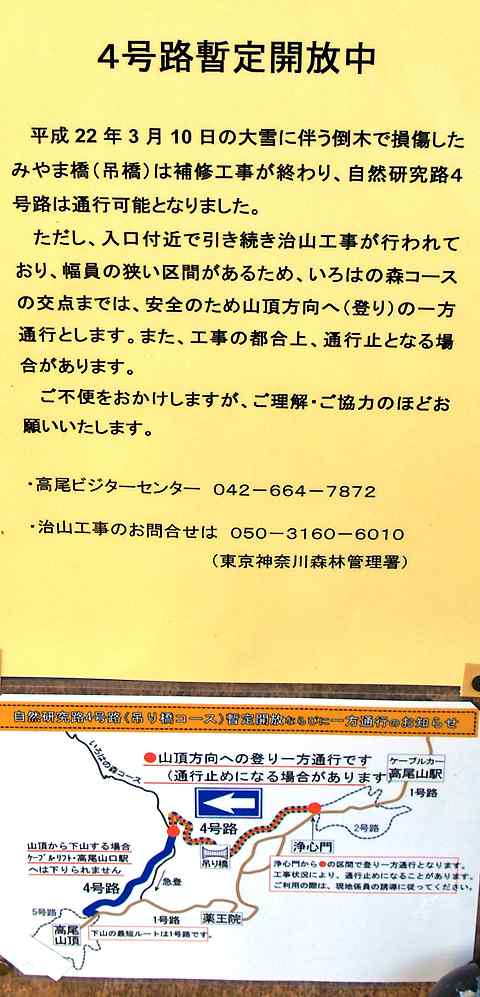 4号路暫定開放中
平成22年3月10日の大雪に伴う倒木で損傷した
みやま橋（吊橋）は補修工事が終わり、自然研究路4
号路は通行可能となりました。
ただし、入口付近で引き続き治山工事が行われて
おり、幅員の狭い区間があるため、いろはの森コース
の交点までは、安全のため山頂方向へ（登り）の一方
通行とします。また、工事の都合上、通行止となる場
合があります。
ご不便をおかけしますが、ご理解・ご協力のほどお
願いいたします。
・高尾ビジターセンター 042－664－7872
・治山工事のお問合せは 050－3160－6010
（東京神奈川森林管理署）
自然研究路4号路（吊り橋コース）暫定開放ならびに一方通行のお知らせ
いろはの森コース
●山頂方向への登り一方通行です
（通行止めになる場合があります
ケーブルカー
高尾山駅
1号路
2号路
4号路
吊り橋
浄心門
浄心門から●の区間で登り一方通行となります。
工事状況により、通行止めになることがあります。
ご利用の際は、現地係員の誘導に従ってください。
山頂から下山する場合
ケーブルリフト・高尾山口駅
へは下りられません
4号路
急登
5号路
1号路
薬王院
高尾
山頂
下山の最短ルートは1号路です。